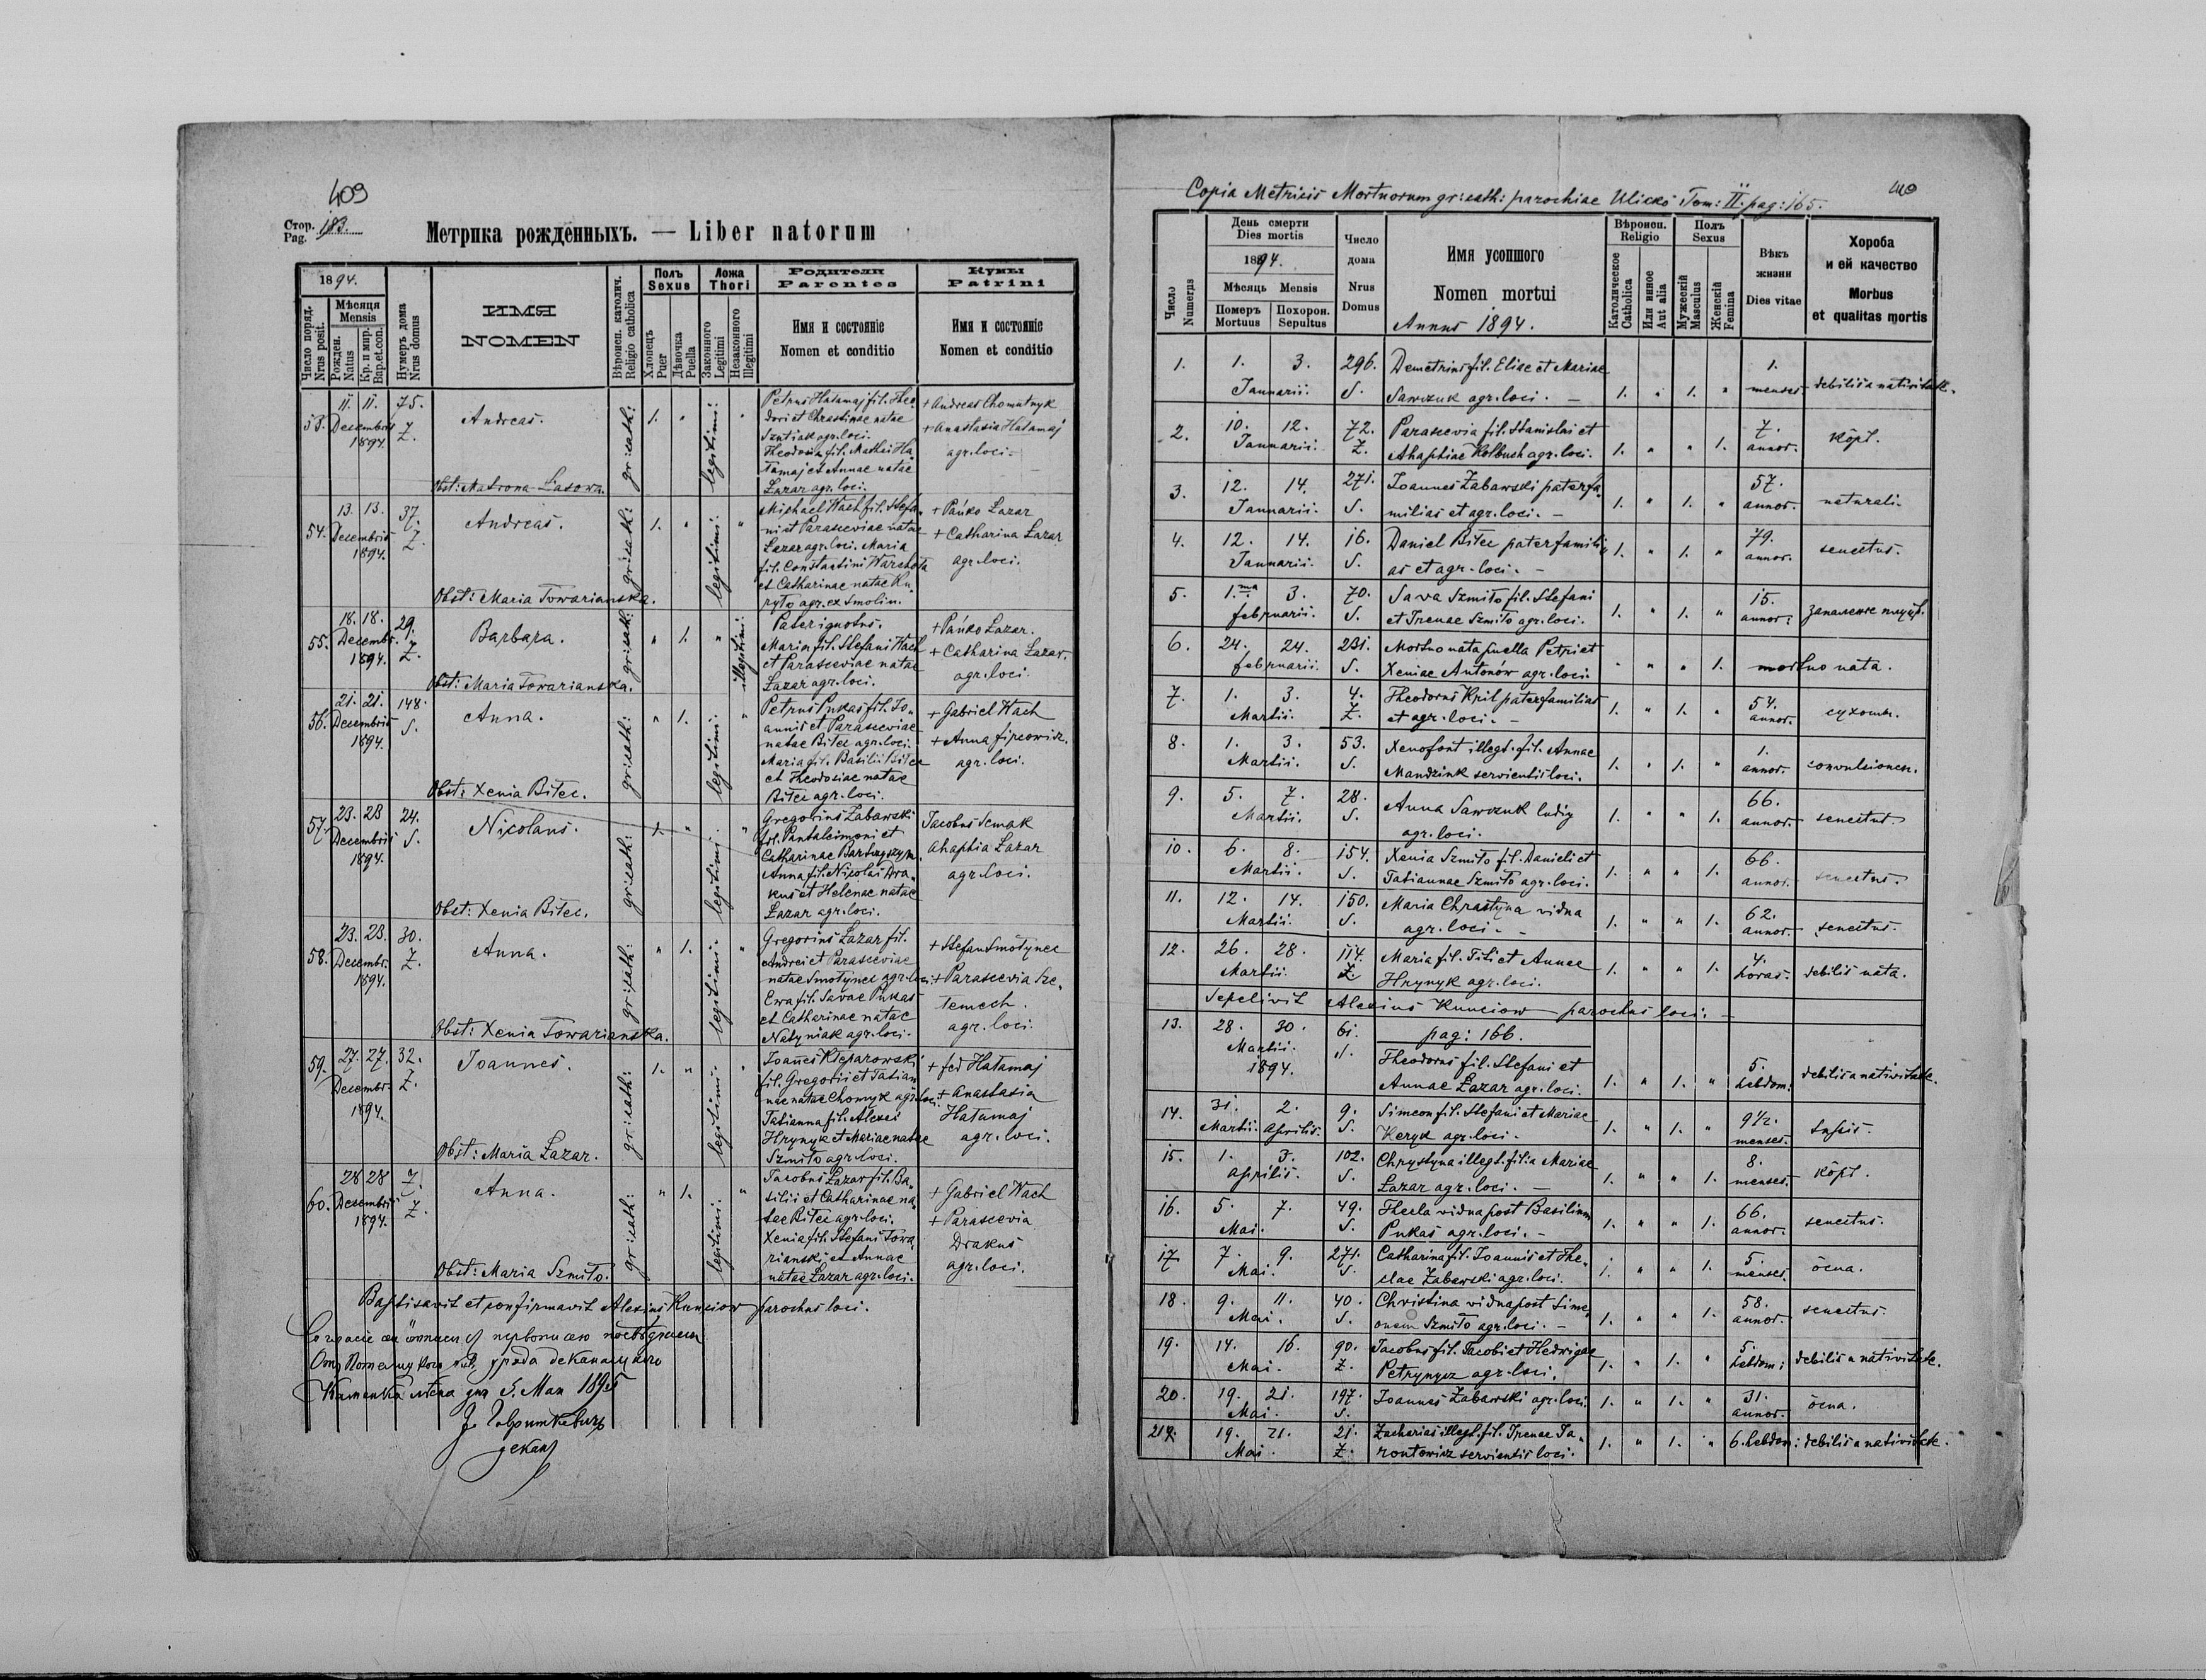 409
Стор. Pag. 183.
Метрика рождéнныхъ. — Liber natorum
1894.
Число поряд. Nrus posit.
Мѣсяця Mensis
Рожден. Natus
Кр. и мир. Bap. et con.
Нумеръ дома Nrus domus
ИМЯ
NOMEN
Вѣроисп. католич. Religio catholica
Полъ Sexus
Хлопецъ Puer
Дѣвочка Puella
Ложа Thori
Законного Legitimi
Незаконного Illegitimi
Родители Parentes
Имя и состоянiе
Nomen et conditio
Кумы Patrini
Имя и состоянiе
Nomen et conditio
53. 11. 11. Decembris 1894. 75. Z.
Andreas.
Obst: Matrona Lasowa.
gr: cath: 1. " legitimi: "
Petrus Hatamaj fil. Theo„
dori et Chrastinae natae
Szutiak agr. loci.
Theodosia fil. Mathei Ha„
tamaj et Annae natae
Łazar agr. loci.
+ Andreas Chomutnyk
+ Anastasia Hatamaj
agr. loci.
54. 13. 13. Decembris 1894. 37. Z.
Andreas.
Obst: Maria Towarianska.
gr: cath: 1. " legitimi: "
Michael Wach fil. Stefa„
ni et Parasceviae natae
Łazar agr. loci. Maria
fil. Constantini Warchoła
et Catharinae natae Ku„
ryło agr. ex Smolin.
+ Pańko Lazar
+ Catharina Lazar
agr. loci.
55. 18. 18. Decembr. 1894. 29. Z.
Barbara.
Obst: Maria Towarianska.
gr: cath: " 1. " illegitimi:
Pater ignotus.
Maria fil. Stefani Wach
et Parasceviae natae
Łazar agr. loci.
+ Pańko Lazar.
+ Catharina Lazar.
agr. loci.
56. 21. 21. Decembris 1894. 148. S.
Anna.
Obst: Xenia Biłec.
gr: cath: " 1. legitimi: "
Petrus Pukas fil. Jo„
annis et Parasceviae
natae Biłec agr. loci.
Maria fil. Basilii Biłec
et Theodosiae natae
Biłec agr. loci.
+ Gabriel Wach
+ Anna
agr. loci.
57. 23. 28 Decembris 1894. 24. S.
Nicolaus.
Obst: Xenia Biłec.
gr: cath: 1. " legitimi: "
Gregorius Zabawski
fil. Pantaleimoni et
Catharinae
Anna fil. Nicolai Dra„
kus et Helenae natae
Łazar agr. loci.
Jacobus Semak
Ahaphia Łazar
agr. loci.
58. 23. 28. Decembr. 1894. 30. Z.
Anna.
Obst: Xenia Towarianska.
gr: cath: " 1. legitimi: "
Gregorius Łazar fil.
Andrei et Parasceviae
natae Smołynec agr. loci.
Ewa fil. Savae Pukas
et Catharinae natae
Natyniak agr. loci.
+ Stefan Smołynec
+ Parascevia Sze„
temech.
agr. loci.
59. 27. 27. Decembr. 1894. 32. Z.
Joannes.
Obst: Maria Łazar.
gr: cath: 1. " legitimi: "
Joannes Kleparowski
fil. Gregorii et Tatian
nae natae Chomyk agr. loci.
Tatianna fil. Alexei
Hrynyk et Mariae natae
Szmiło agr. loci.
+ Fed Hatamaj
+ Anastasia
Hatamaj
agr. loci.
60. 28 28 Decembris 1894. 7. Z.
Anna.
Obst: Maria Szmiło.
gr: cath: " 1. legitimi: "
Jacobus Łazar fil. Ba„
silii et Catharinae na„
tae Biłec agr. loci.
Xenia fil. Stefani Towa„
rianski et Annae
natae Łazar agr. loci.
+ Gabriel Wach
+ Parascevia
Drakus
agr. loci.
Baptisavit et confirmavit Alexius Kunciow parochus loci.
Отъ уряда деканального
5. Мая 1895
деканъ
Copia Metricis Mortuorum gr: cath: parochiae Ulicko Tom: II. pag: 165.
410
Число Numerus
День смерти Dies mortis
1894.
Мѣсяць Mensis
Померъ Mortuus
Похорон. Sepultus
Число дома Nrus Domus
Имя усопшого
Nomen mortui
Annus 1894.
Вѣроисп. Religio
Католическое Catholica
Или иное Aut alia
Полъ Sexus
Мужескій Masculus
Женскій Femina
Вѣкъ жизни Dies vitae
Хороба и ей качество
Morbus et qualitas mortis
1. 1. 3. Januarii. 296. S. Demetrius fil. Eliae et Mariae
Sawczuk agr. loci. — 1. " 1. " 1. menses debilis a nativitate.
2. 10. 12. Januarii. 72. Z. Parascevia fil. Stanislai et
Ahaphiae Kolbuch agr. loci. 1. " " 1. 7. annor. кôрь.
3. 12. 14. Januarii. 271. S. Joannes Zabawski paterfa„
milias et agr. loci. — 1. " 1. " 57. annor. naturali.
4. 12. 14. Januarii. 16. S. Daniel Biłec paterfamili„
as et agr. loci. — 1. " 1. " 79. annor. senectus.
5. 1.ma 3. februarii. 70. S. Sawa Szmiło fil. Stefani
et Irenae Szmiło agr. loci. 1. " 1. " 15. annor: запаленіе
6. 24. 24. februarii. 231. S. Mortuo nata puella Petri et
Xeniae Antonów agr. loci. " " " 1. mortuo nata.
7. 1. 3. Martii. 4. Z. Theodorus Kril paterfamilias
et agr. loci. — 1. " 1. " 54. annor. сухоты.
8. 1. 3. Martii. 53. S. Xenofont illegt. fil. Annae
Mandziuk servientis loci. 1. " 1. " 1. annor. convulsiones.
9. 5. 7. Martii. 28. S. Anna Sawczuk
agr. loci. 1. " " 1. 66. annor. senectus.
10. 6. 8. Martii. 154. S. Xenia Szmiło fil. Danieli et
Tatiannae Szmiło agr. loci. 1. " " 1. 66. annor. senectus.
11. 12. 14. Martii. 150. S. Maria Chrastyna vidua
agr. loci. - 1. " " 1. 62. annor. senectus.
12. 26. 28. Martii. 114. Z. Maria fil. Titi et Annae
Hrynyk agr. loci. 1. " " 1. 4. horas. debilis nata.
Sepelivit Alexius Kunciow — parochus loci. —
13. 28. 30. Martii. 1894. 61. S. pag: 166.
Theodorus fil. Stefani et
Annae Łazar agr. loci. 1. " 1. " 5. hebdom: debilis a nativitate.
14. 31. Martii. 2. Aprilis. 9. S. Simeon fil. Stefani et Mariae
Keryk agr. loci. 1. " 1. " 9 1/2. menses. tussis.
15. 1. 3. Aprilis. 102. S. Chrystyna illegt. filia Mariae
Łazar agr. loci. — 1. " " 1. 8. menses. кôрь.
16. 5. 7. Mai. 49. S. Thecla vidua post Basilium
Pukas agr. loci. — 1. " " 1. 66. annor. senectus.
17 7. 9. Mai. 271. S. Catharina fil. Joannis et The„
clae Zabawski agr. loci. 1. " " 1. 5. menses. ôспа.
18. 9. 11. Mai. 40. S. Christina vidua post Sime„
onem Szmiło agr. loci. — 1. " " 1. 58. annor. senectus
19. 14. 16. Mai. 90. Z. Jacobus fil. Jacobi et Hedwigae
Petrynycz agr. loci. 1. " 1. " 5. hebdom: debilis a nativitate.
20. 19. 21. Mai. 197. S. Joannes Zabawski agr. loci. 1. " 1. " 31. annor. ôспа.
21. 19. 21. Mai. 21. Z. Zacharias illegt. fil. Irenae Ta„
rontowicz servientis loci. 1. " 1. " 6. hebdom: debilis a nativitate.